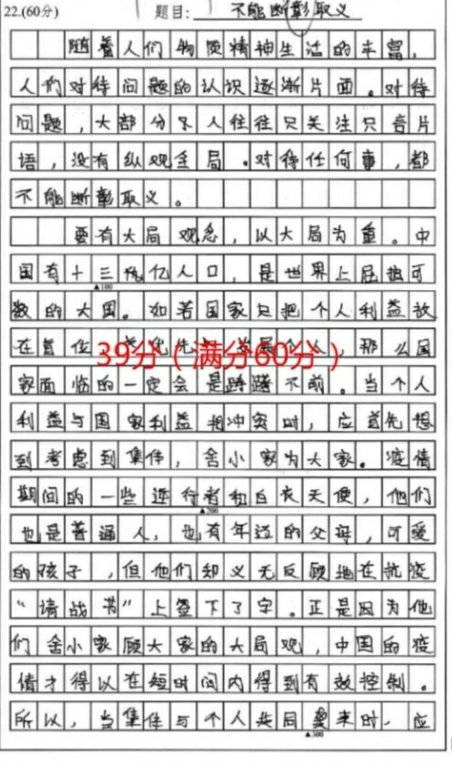 22.(60分) 题目: 不能断彰取义
随着人们物质精神生活的丰富,
人们对待问题的认识逐渐片面。对待
问题,大部分人往往只关注只言片
语,没有纵观全局。对待任何事,都
不能断彰取义。
要有大局观念,以大局为重。中
国有十三亿人口,是世界上屈指可
▲100
数的大国。如若国家只把个人利益放
在首位,那么国
39分(满分60分)
家面临的一定会是踌躇不前。当个人
利益与国家利益相冲突时,应首先想
到考虑到集体,舍小家为大家。疫情
期间的一些逆行者和白衣天使,他们
▲200
也是普通人,也有年迈的父母,可爱
的孩子,但他们却义无反顾地在抗疫
“请战书”上签下了字。正是因为他
们舍小家顾大家的大局观,中国的疫
情才得以在短时间内得到有效控制。
所以,当集体与个人共同来时,应
▲300